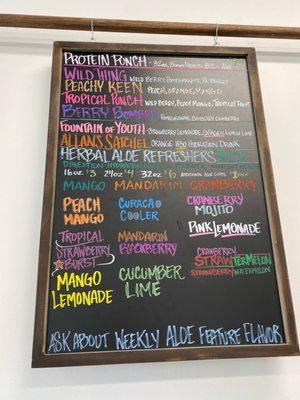 PROTEIN PUNCH
WILD THING WILD BERRY, POMEGRANATE, RASPBERRY
PEACHY KEEN PEACH, ORANGE, MANGO
TROPICAL PUNCH WILD BERRY, PEACH MANGO, TROPICAL FRUIT
BERRY BOMB POMEGRANATE, BLACKBERRY, CRANBERRY
FOUNTAIN OF YOUTH STRAWBERRY LEMONADE, LEMON LIME
ALLANS SATCHEL ORANGE H3O HYDRATION DRINK
HERBAL ALOE REFRESHERS
DIGESTION HYDRATION
16oz $3 24oz $4 32oz $6 ADDITIONAL ALOE
MANGO MANDARIN CRANBERRY
PEACH MANGO
CURACAO COOLER
CRANBERRY MOJITO
PINK LEMONADE
TROPICAL STRAWBERRY BURST
MANDARIN BLACKBERRY
CRANBERRY STRAWTERMELON
STRAWBERRY WATERMELON
MANGO LEMONADE
CUCUMBER LIME
ASK ABOUT WEEKLY ALOE FEATURE FLAVOR